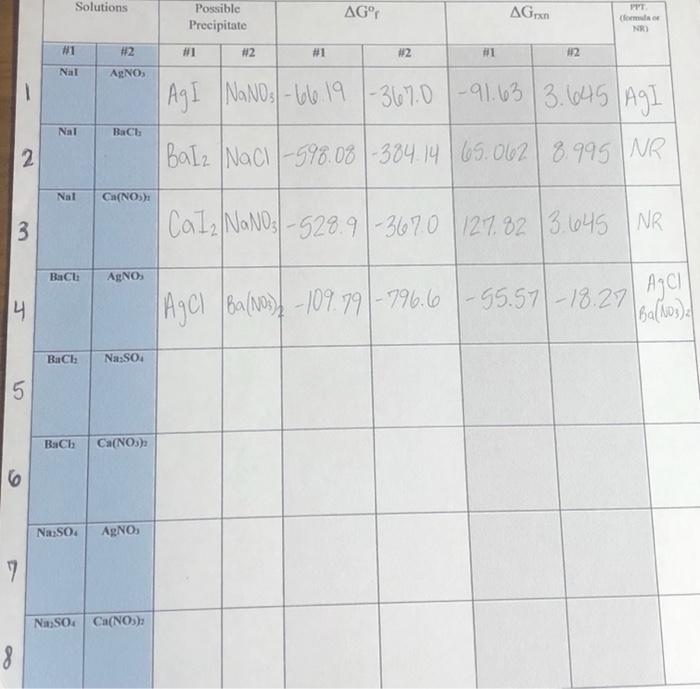 Solutions Possible ΔG°f ΔGrxn PPT.
Precipitate (formula or
NR)
#1 #2 #1 #2 #1 #2 #1 #2
1 NaI AgNO₃ AgI NaNO₃ -66.19 -367.0 -91.63 3.645 AgI
2 NaI BaCl₂ BaI₂ NaCl -598.08 -384.14 65.062 8.995 NR
3 NaI Ca(NO₃)₂ CaI₂ NaNO₃ -528.9 -367.0 127.82 3.645 NR
4 BaCl₂ AgNO₃ AgCl Ba(NO₃)₂ -109.79 -796.6 -55.57 -18.27 AgCl
Ba(NO₃)₂
5 BaCl₂ Na₂SO₄
6 BaCl₂ Ca(NO₃)₂
7 Na₂SO₄ AgNO₃
8 Na₂SO₄ Ca(NO₃)₂